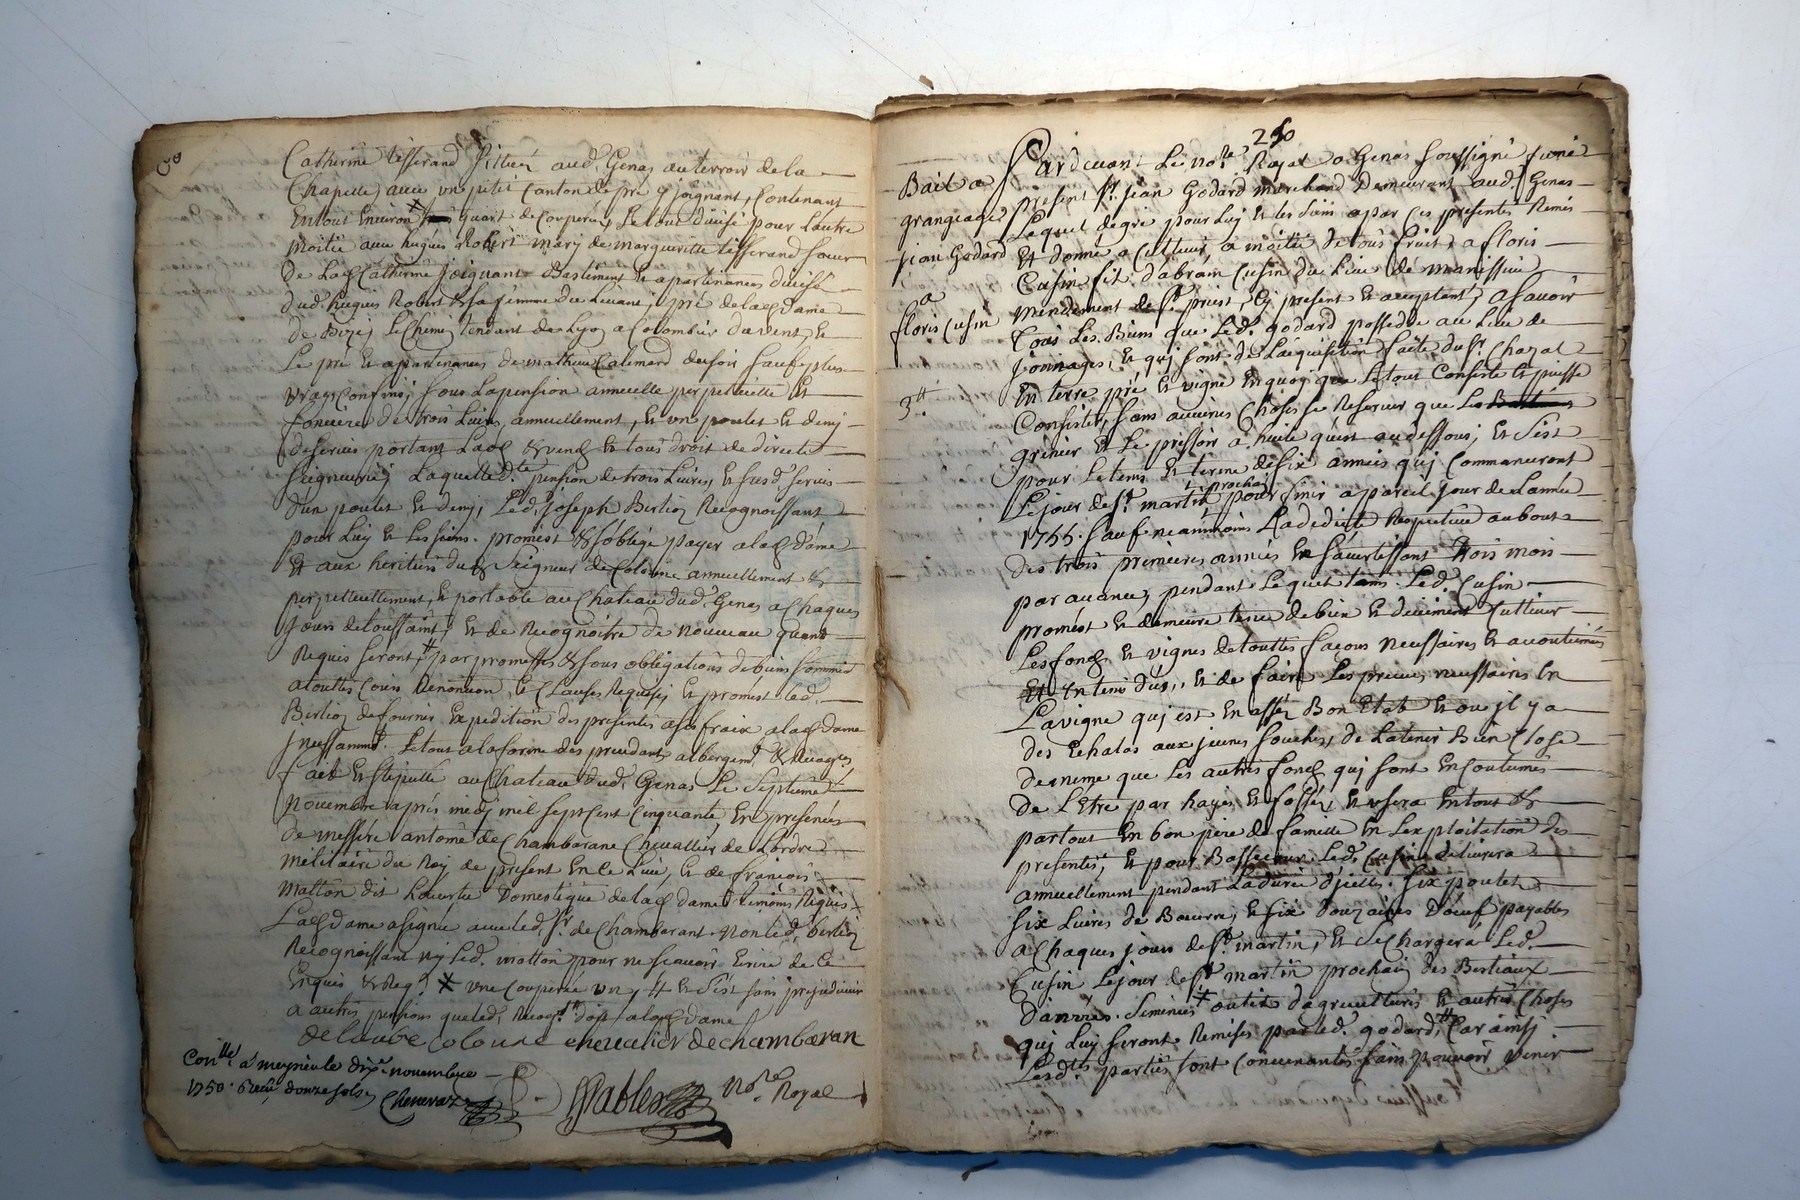 Catherine tisserand scittués aud. Genas au terroir de la
Chapelle, avec un petit Canton de pré y joignant, Contenant
En tout Environ quart de Couperée, Le tout divisé pour l'autre
moitié avec hugues Robert mary de margueritte tisserand soeur
De Lad Catherine joignant Bastiment & apartenances divisé
dud hugues Robert & sa femme du Levant, pré de lad Dame
de Buzej Le Chemin tendant de Lyon a Colombier du vent, &
Le pré & apartenances de mathieu Calemard du soir sauf plus
vrays Confins; sous La pension annuelle perpetuelle &
fonciere de trois Livres, annuellement, & un poulet & demy
de servis portant Lods & vends & tous droit de directe
seigneurie, Laquelle d.te pension de trois Livres, & susd. servis
D'un poulet & demj, Led. joseph Berlioz Recognoissant
pour Luy & Les siens. promest & s'oblige payer a lad Dame
Et aux heritiers dud Seigneur de Colonne annuellement &
perpetuellement, & portable au Chateau dud. Genas a Chaques
jours de toussaint, & de Recognoitre de nouveau quand
Requis seront, par promesses & sous obligations de biens soumis
a touttes Cours Renontion, & Clauses Requises & promest led.
Berlioz de fournir Expedition des presentes a ses fraix a lad Dame
jncessamm.t Le tout a la forme des precedants albergem.t &
fait & stipullé au Chateau dud. Genas Le Septieme
Novembre après midj mil sept Cent Cinquante, En presences
de messire antoine de Chambarane Chevallier de L'ordre
militaire du Roy, de present En ce Lieu, & de françois
matton dit Domestique de lad dame temoins Requis
Lad Dame a signé avec led. Sr. de Chambarant non led. berlioz
Recognoissant nj Led. motton pour ne scavoir Ecrire de Ce
Enquis & Req. X une Couperée un & C'est sans prejudicier
a autres pensions que led. Recog.t doit a lad Dame
de laube Colonne chevalier de chambaran
Con.llé a meyzieule dix.e novembre
1750. Receu douze sols. Chenevaz
Sablez No.re Royal
250
Bail a
grangeage
jean Godard
a
floris Cusin
3 tt
Pardevant Le No.re Royal a Genas soussigné fume
present Sr. jean Godard marchand Demeurant aud. Genas
Lequel de gré pour Luy & les siens a par ces presentes Remis
Et donné a Cultiver a moitié de tous fruits a floris
Cusin fils d'abraim Cusin du Lieu de manissieu
mendement de St. priest, Cj present & acceptant, a Savoir
Tous Les Biens que Led. godard possedde au Lieu de
jonnages, & quj sont de L'acquisition faite du Sr. Chazal
En terre pré & vigne En quoj que Le tout Consiste & puisse
Consister, sans aucunes Choses se Reserver que Les
grenier & Le pressoir a huile quj est au dessous; & C'est
pour Le tems & terme de six années quj Commanceront
Le jour de St. martin prochain pour finir a pareil jour de L'année
1755. sauf neammoins La dedicte Respective au bout
des trois premieres années En s'avertissant trois mois
par avance, pendant Lequel tems Led. Cusin
promest & demeure tenu de bien & deüement Cultiver
Les fonds & vignes de touttes façons necessaires & acoutumés
Et En tems dus, & de faire Les necessaires En
La vigne quj est En assés Bon Etat & ou jl y a
des Echalas aux jeunes souches, de La tenir Bien Close
de meme que Les autres fonds quj sont En Coutumes
de L'Etre par hayes & fossés, & usera En tout &
partout En bon pere de famille En L'exploitation des
presentes, & pour Bassecour Led. Cusin delivrera
annuellement pendant La durée d'jcelles. six poulets
six Livres de Beurre, & six douzaines d'oeuf payables
a Chaques jours de St. martin, & se Chargera Led.
Cusin Le jour de St. martin prochain des Bestiaux
D'. Semences outils d'agriculture & autres Choses
quj Luy seront Remises par led. godard, Car ainsj
Lesd.tes parties sont Convenantes sans pouvoir Venir